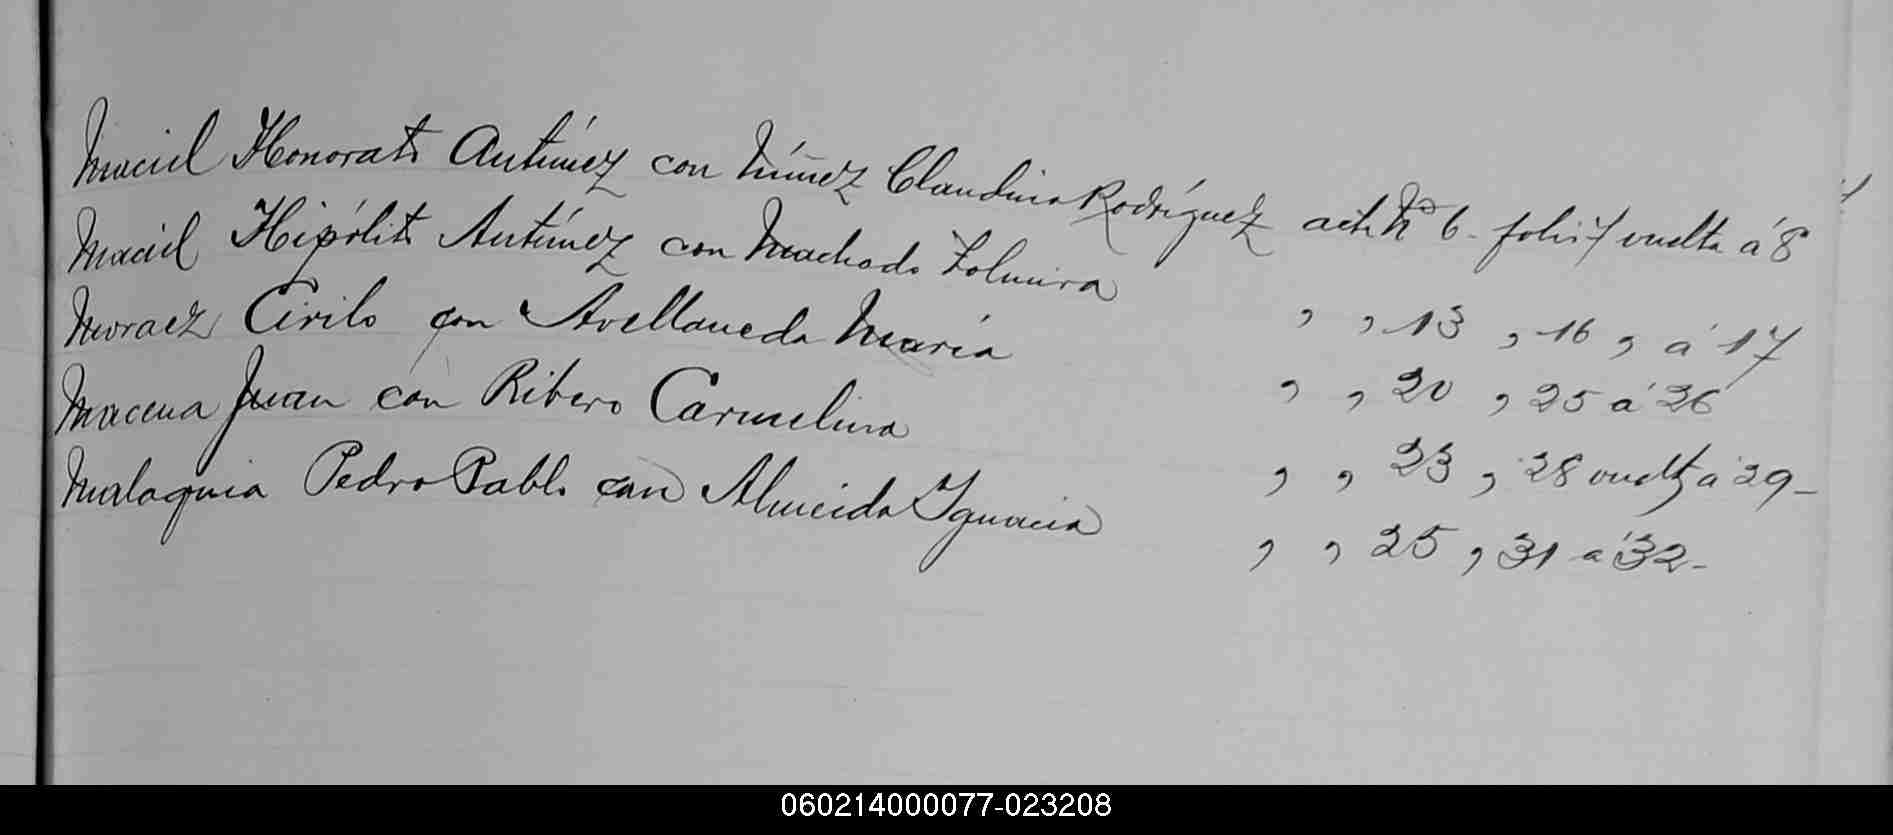 Maciel Honorato Antúnez con Núñez Claudina Rodríguez acta Nº 6 - folio 7 vuelta á 8
Maciel Hipólito Antúnez con Machado Zolmira " " 13 " 16 " á 17
Moraez Cirilo con Avellaneda María " " 20 " 25 á 26
Macena Juan con Ribero Carmelina " " 23 " 28 vuelta á 29 -
Malaquia Pedro Pablo con Almeida Ygnacia " " 25 " 31 a 32 -
060214000077-023208